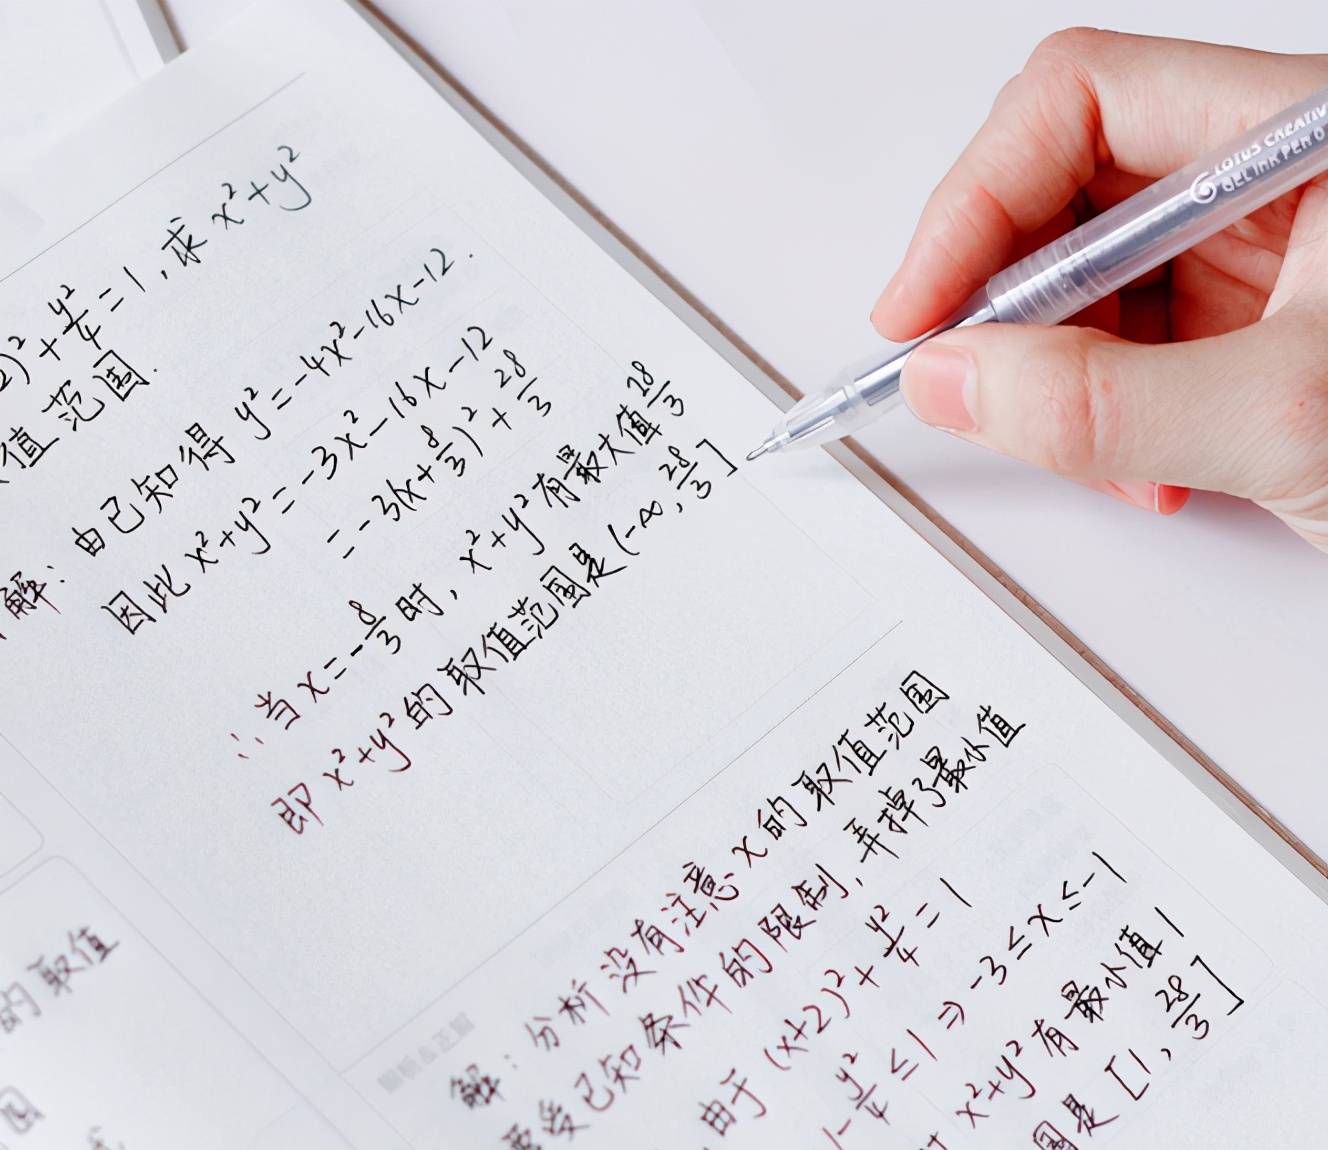 2)² + y²/4 = 1, 求 x² + y²
值范围.
解: 由已知得 y² = -4x² - 16x - 12.
因此 x² + y² = -3x² - 16x - 12
= -3(x + 8/3)² + 28/3
∴当 x = -8/3 时, x² + y² 有最大值 28/3
即 x² + y² 的取值范围是 (-∞, 28/3]
的取值
解: 分析没有注意 x 的取值范围
要受已知条件的限制, 弄掉了最小值
由于 (x+2)² + y²/4 = 1
1 - y²/4 ≤ 1 ⇒ -3 ≤ x ≤ -1
x² + y² 有最小值 1
围是 [1, 28/3]
LOTUS CREATIV
GEL INK PEN 0